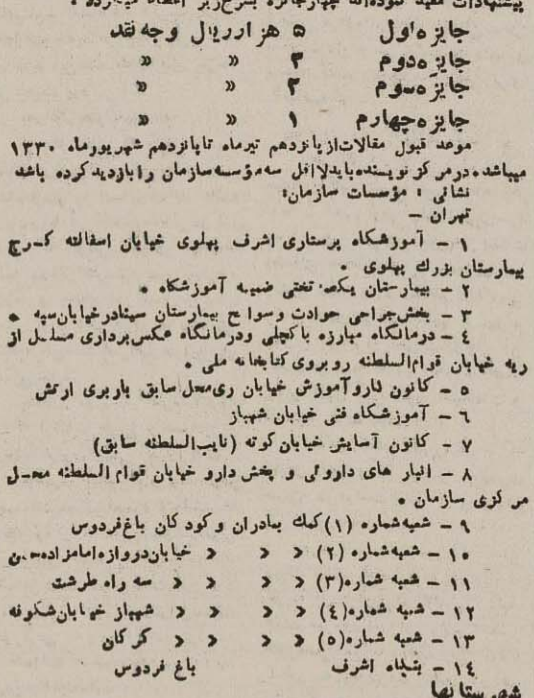 پیشنهادات مفید نموده‌اند چهار جائزه بشرح زیر اعطاء میگردد .
جایزه اول ۵ هزار ریال وجه نقد
جایزه دوم ۳ « «
جایزه سوم ۲ « «
جایزه چهارم ۱ « «
موعد قبول مقالات از پانزدهم تیرماه تا پانزدهم شهریورماه ۱۳۳۰
میباشد. در مرکز نویسنده باید لااقل سه مؤسسه سازمان را بازدید کرده باشد
نشانی : مؤسسات سازمان:
تهران –
۱ – آموزشگاه پرستاری اشرف پهلوی خیابان اسفالته کرج
بیمارستان بزرك پهلوی .
۲ – بیمارستان یکصد تختی ضمیمه آموزشگاه .
۳ – بخش جراحی حوادث وسوانح بیمارستان سینا در خیابان سپه .
٤ – درمانگاه مبارزه باکچلی ودرمانگاه عکس‌برداری مسلسل از
ریه خیابان قوام‌السلطنه روبروی کتابخانه ملی .
۵ – کانون کار و آموزش خیابان ری محل سابق باربری ارتش
٦ – آموزشگاه فنی خیابان شهباز
۷ – کانون آسایش خیابان کوته (نایب‌السلطنه سابق)
۸ – انبار های داروئی و پخش دارو خیابان قوام السلطنه محل
مرکزی سازمان .
۹ – شعبه شماره (۱) کمك بمادران و کودکان باغ فردوس
۱۰ – شعبه شماره (۲) « « « خیابان دروازه امامزاده حسن
۱۱ – شعبه شماره (۳) « « « سه راه طرشت
۱۲ – شعبه شماره (٤) « « « شهباز خیابان شکوفه
۱۳ – شعبه شماره (۵) « « « گرگان
۱٤ – بنگاه اشرف باغ فردوس
شهرستانها